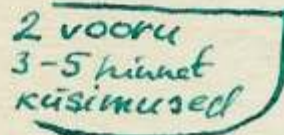 2 vooru
3-5 hinnet
küsimused